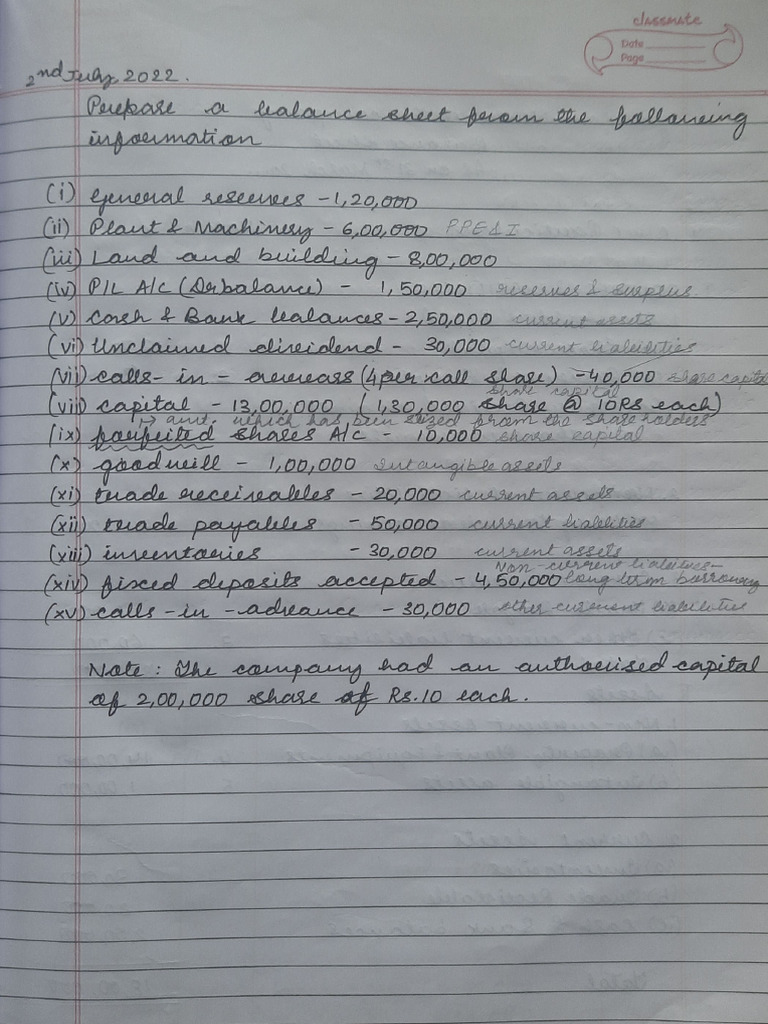 classmate
Date
Page
2nd July 2022.
Prepare a balance sheet from the following
information
(i) General reserves - 1,20,000
(ii) Plant & Machinery - 6,00,000 PPE&I
(iii) Land and building - 8,00,000
(iv) P/L A/C (Dr balance) - 1,50,000 reserves & surplus
(v) Cash & Bank balances - 2,50,000 current assets
(vi) Unclaimed dividend - 30,000 current liabilities
(vii) calls - in - arrears (4 per call share) - 40,000 share capital
share capital
(viii) capital - 13,00,000 (1,30,000 share @ 10RS each)
↳ amt. which has been seized from the share holders
(ix) forfeited shares A/c - 10,000 share capital
(x) goodwill - 1,00,000 Intangible assets
(xi) trade receivables - 20,000 current assets
(xii) trade payables - 50,000 current liabilities
(xiii) inventories - 30,000 current assets
Non-current liabilities-
(xiv) fixed deposits accepted - 4,50,000 long term borrowing
(xv) calls - in - advance - 30,000 other current liabilities
Note : The company had an authorised capital
of 2,00,000 share of Rs.10 each.